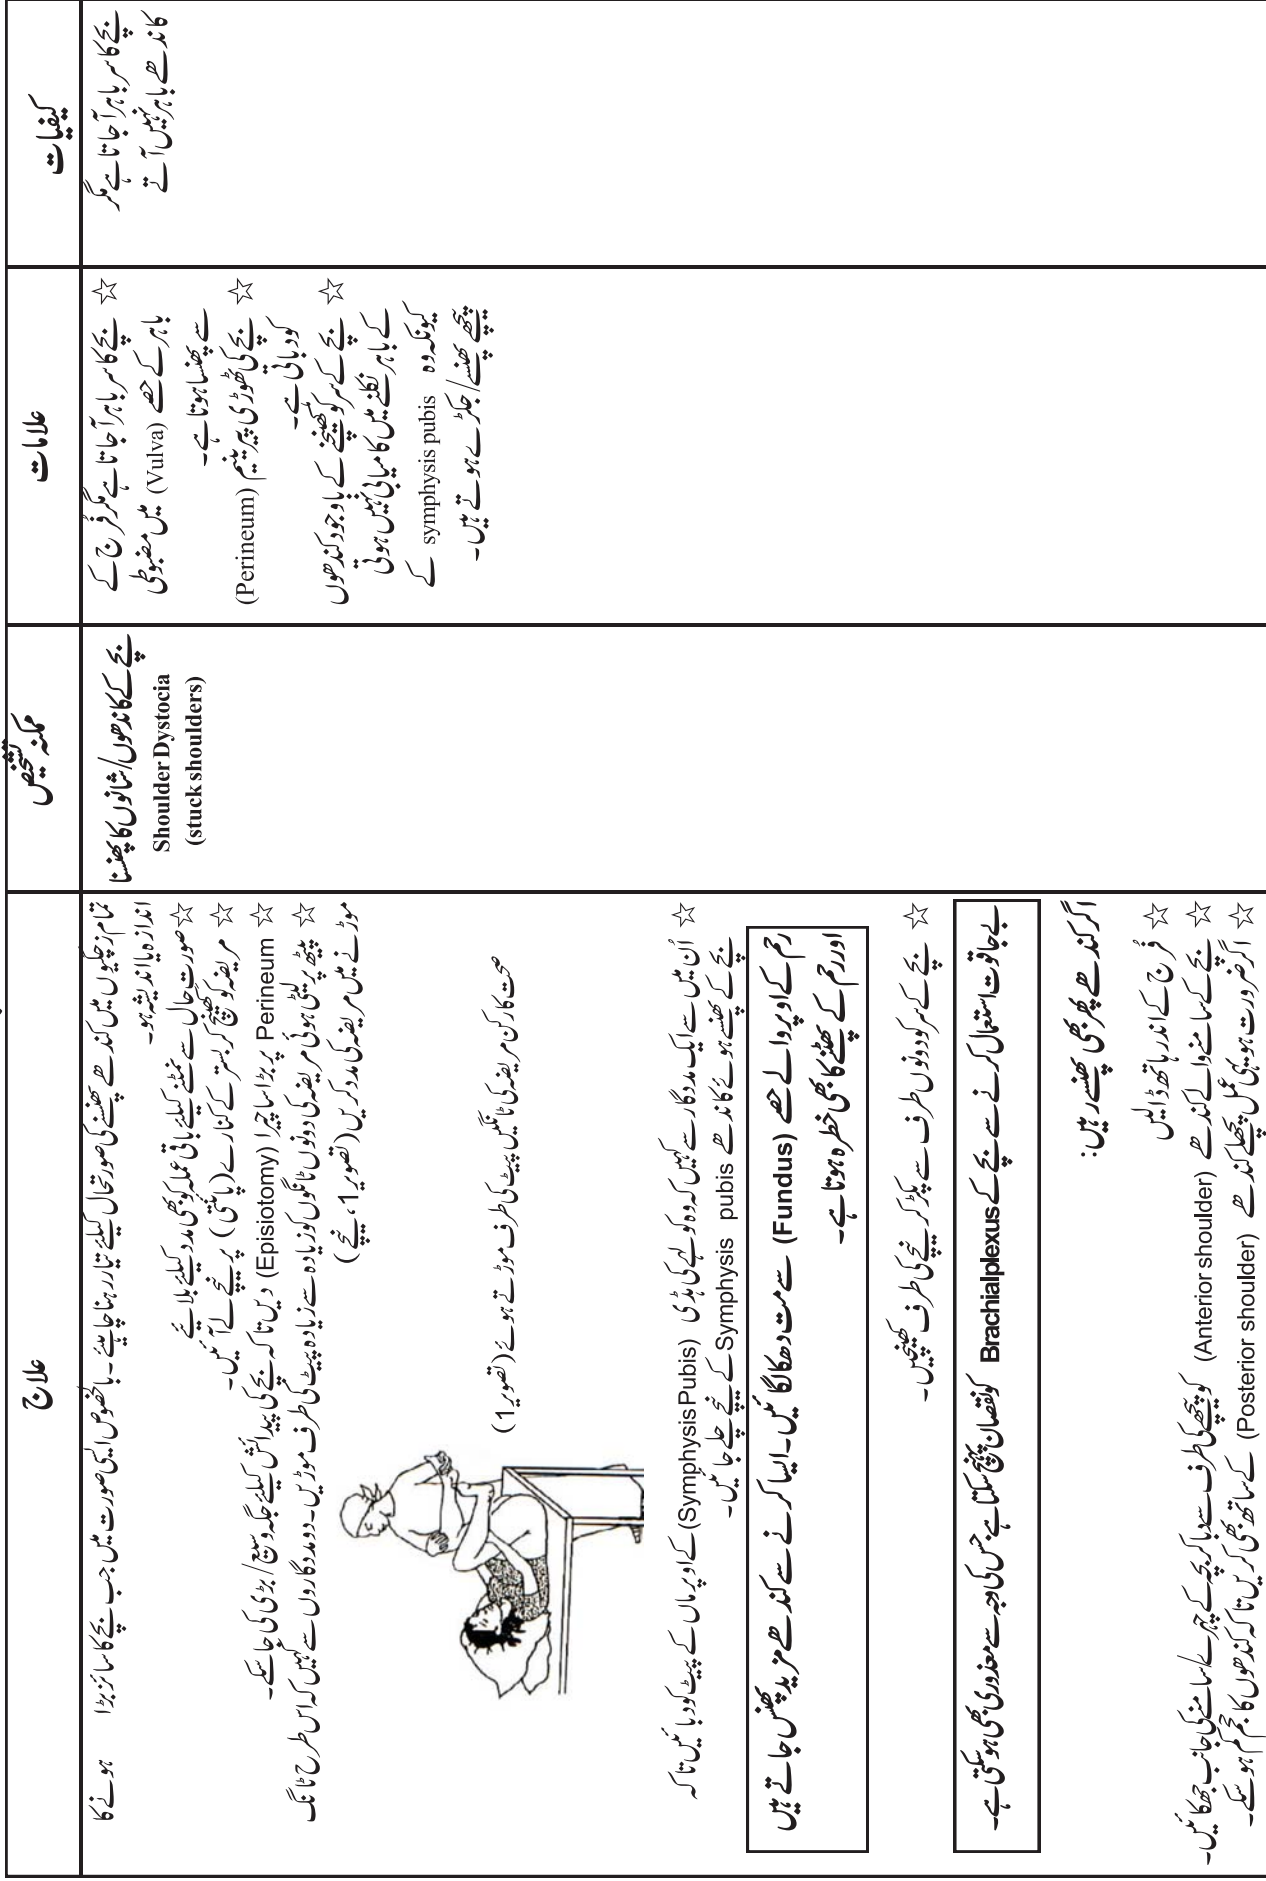 کیفیات
بچے کا سر باہر آ جاتا ہے مگر
کاندھے باہر نہیں آتے
علامات
☆ بچے کا سر باہر آ جاتا ہے مگر فُرج کے
باہر کے حصے (Vulva) میں مضبوطی
سے پھنسا ہوتا ہے۔
☆ بچے کی ٹھوڑی پیرینیم (Perineum)
کو دباتی ہے۔
☆ بچے کے سر کو کھینچنے کے باوجود کندھوں
کے باہر نکلنے میں کامیابی نہیں ہوتی
کیونکہ وہ symphysis pubis کے
پیچھے پھنسے/جکڑے ہوتے ہیں۔
ممکنہ تشخیص
بچے کے کاندھوں/شانوں کا پھنسنا
Shoulder Dystocia
(stuck shoulders)
علاج
تمام زچگیوں میں کندھے پھنسنے کی صورتحال کیلئے تیار رہنا چاہیئے۔ بالخصوص ایسی صورت میں جب بچے کا سائز بڑا ہونے کا
اندازہ یا اندیشہ ہو۔
☆ صورت حال سے نمٹنے کیلئے باقی عملہ کو بھی مدد کیلئے بلایئے
☆ مریضہ کو کھینچ کر بستر کے کنارے (پائنتی) پر نیچے لے آئیں۔
☆ Perineum پر بڑا سا چیرا (Episiotomy) دیں تاکہ بچے کی پیدائش کیلئے جگہ وسیع/بڑی کی جا سکے۔
☆ پیٹھ پر لیٹی ہوئی مریضہ کی دونوں ٹانگوں کو زیادہ سے زیادہ پیٹ کی طرف موڑیں۔ دو مددگاروں سے کہیں کہ اس طرح ٹانگ
موڑنے میں مریضہ کی مدد کریں (تصویر 1، نیچے)
صحت کارکن مریضہ کی ٹانگیں پیٹ کی طرف موڑتے ہوئے (تصویر 1)
☆ اُن میں سے ایک مددگار سے کہیں کہ وہ کولہے کی ہڈی (Symphysis Pubis) کے اوپر ماں کے پیٹ کو دبائیں تاکہ
بچے کے پھنسے ہوئے کاندھے Symphysis pubis کے نیچے چلے جائیں۔
رحم کے اوپر والے حصے (Fundus) سے مت دھکا لگائیں۔ ایسا کرنے سے کندھے مزید پھنس جاتے ہیں
اور رحم کے پھٹنے کا بھی خطرہ ہوتا ہے۔
☆ بچے کے سر کو دونوں طرف سے پکڑ کر نیچے کی طرف کھینچیں۔
بے جا قوت استعمال کرنے سے بچے کے Brachialplexus کو نقصان پہنچ سکتا ہے، جس کی وجہ سے معذوری بھی ہو سکتی ہے۔
اگر کندھے پھر بھی پھنسے رہیں:
☆ فُرج کے اندر ہاتھ ڈالیں
☆ بچے کے سامنے والے کندھے (Anterior shoulder) کو پیچھے کی طرف سے دبا کر بچہ کے چہرے/سامنے کی جانب جھکائیں۔
☆ اگر ضرورت ہو یہی عمل پچھلے کندھے (Posterior shoulder) کے ساتھ بھی کریں تاکہ کندھوں کا حجم کم ہو سکے۔